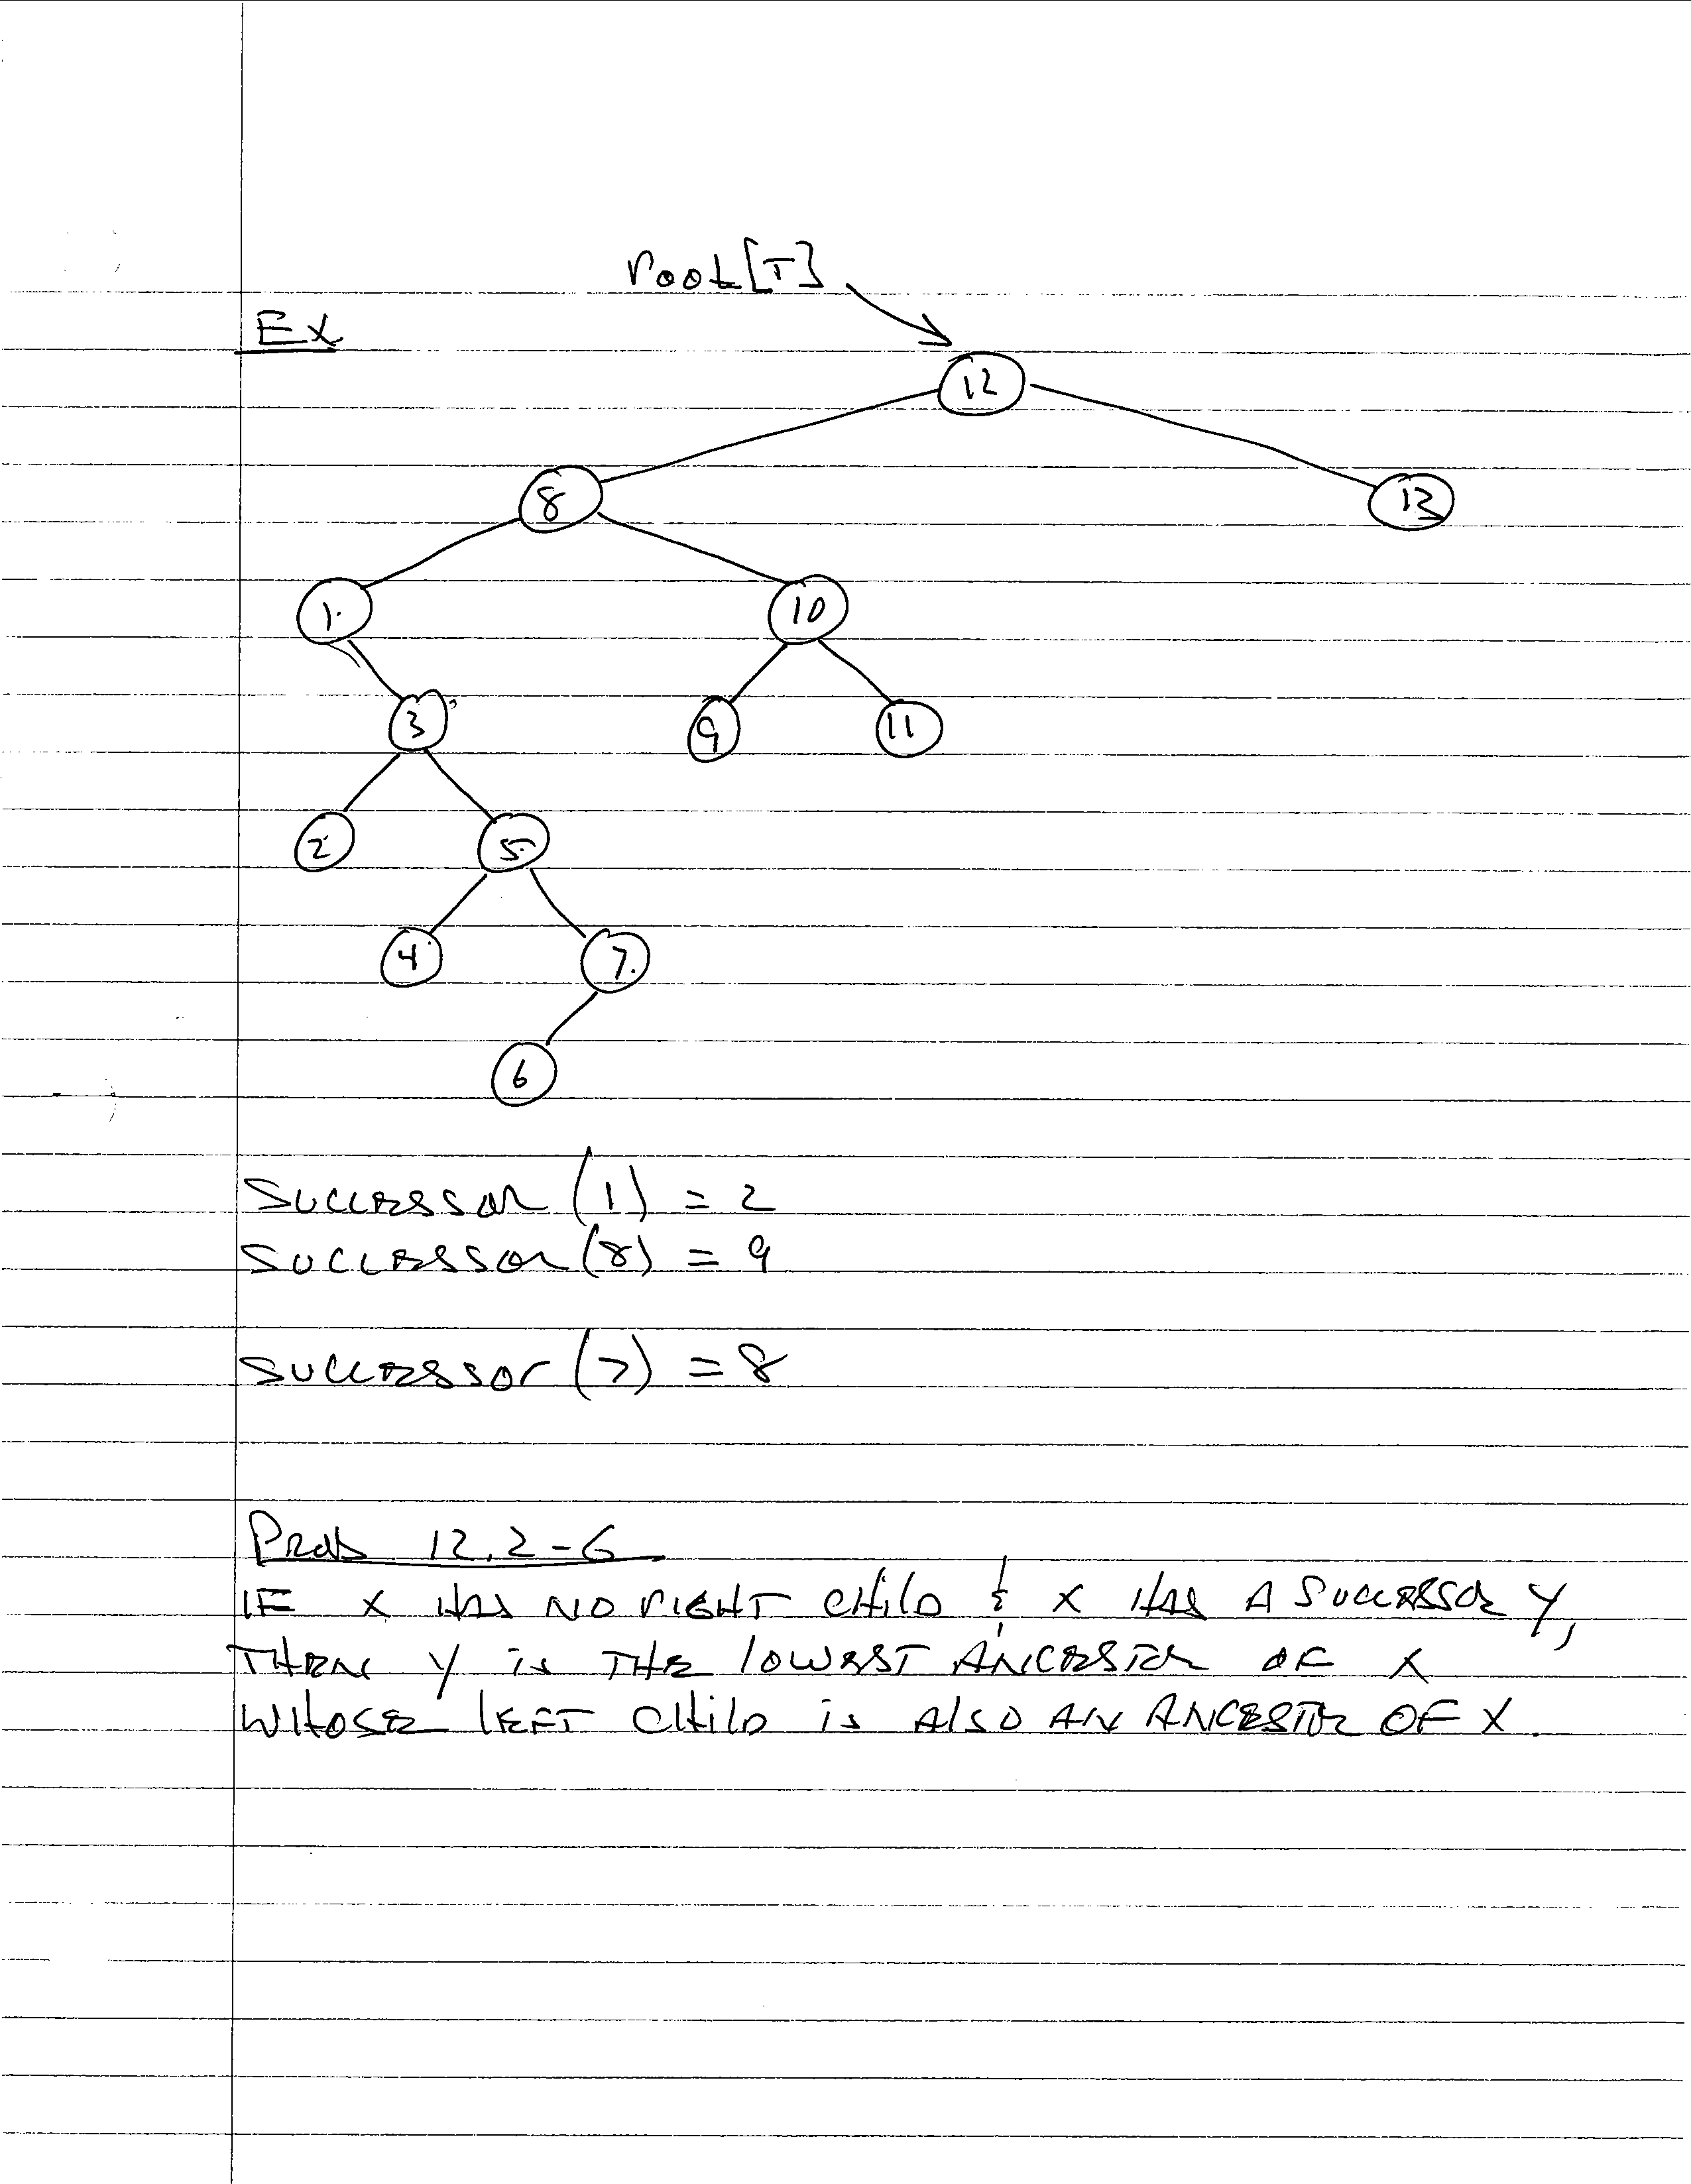 root[T]
Ex
12
8 13
1 10
3 9 11
2 5
4 7
6
SUCCESSOR (1) = 2
SUCCESSOR (8) = 9
SUCCESSOR (7) = 8
Prob 12.2-6
IF X HAS NO RIGHT CHILD & X HAS A SUCCESSOR Y,
THEN Y is THE LOWEST ANCESTOR OF X
WHOSE LEFT CHILD is Also AN ANCESTOR OF X.